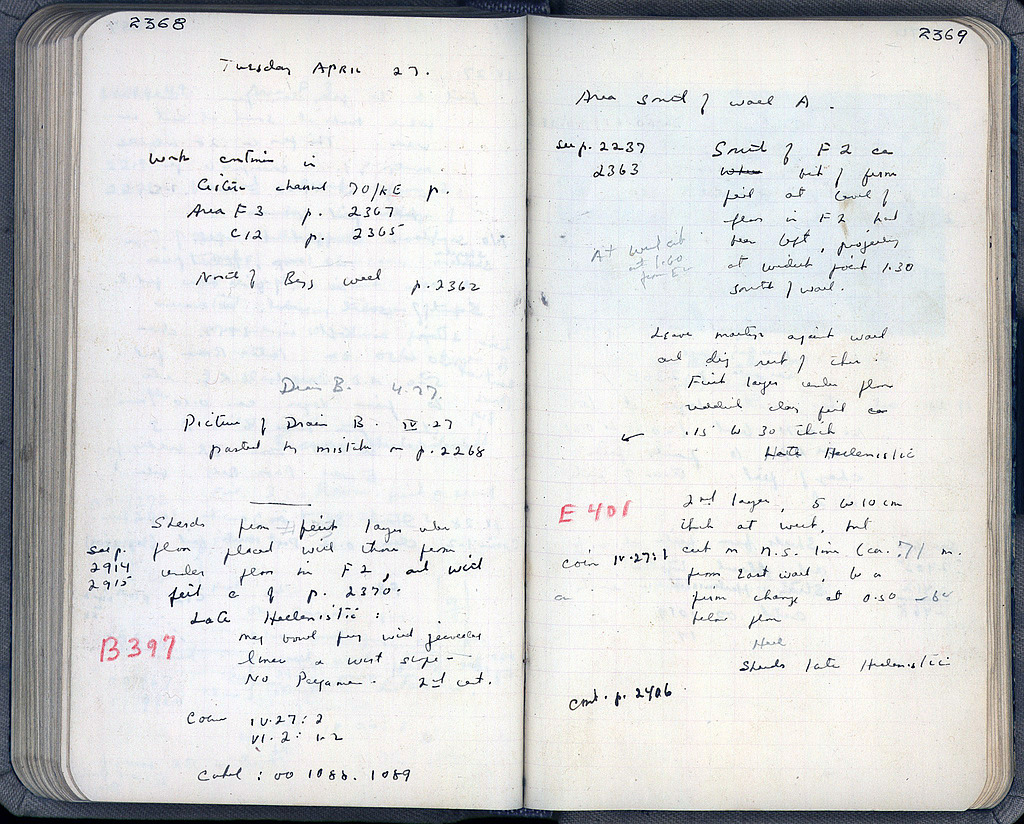 2368
Tuesday APRIL 27.
Work continues in
Cistern channel 70/KE p.
Area F3 p. 2367
C12 p. 2365
North of Byz wall p. 2362
Drain B. 4.27.
Picture of Drain B. IV.27
pasted by mistake on p. 2268
Sherds from first layer under
floor placed with those from
see p. 2914 2915
under floor in F2, and with
fill c of p. 2370.
Late Hellenistic:
B397
meg bowl frag with
lines a
No Pergamene. 2nd cent.
Coin IV.27:2
VI.2:1-2
Catal: 1088. 1089
2369
Area South of wall A.
see p. 2237
2363
South of F2 ca
when bit of firm
fill at level of
floor in F2 had
been left, projecting
at widest point 1.30
south of wall.
At West
at 1.60
from E
Leave martyr against wall
and dig rest of this.
First layer under floor
reddish clay fill ca
.15 to 30 thick
Late Hellenistic
E401
2nd layer, 5 to 10 cm
thick at west, but
coin IV.27:1
cut on N.S. line (ca. .71 m.
from East wall, to a
firm change at 0.50
below floor
Sherds late Hellenistic
cont. p. 2406